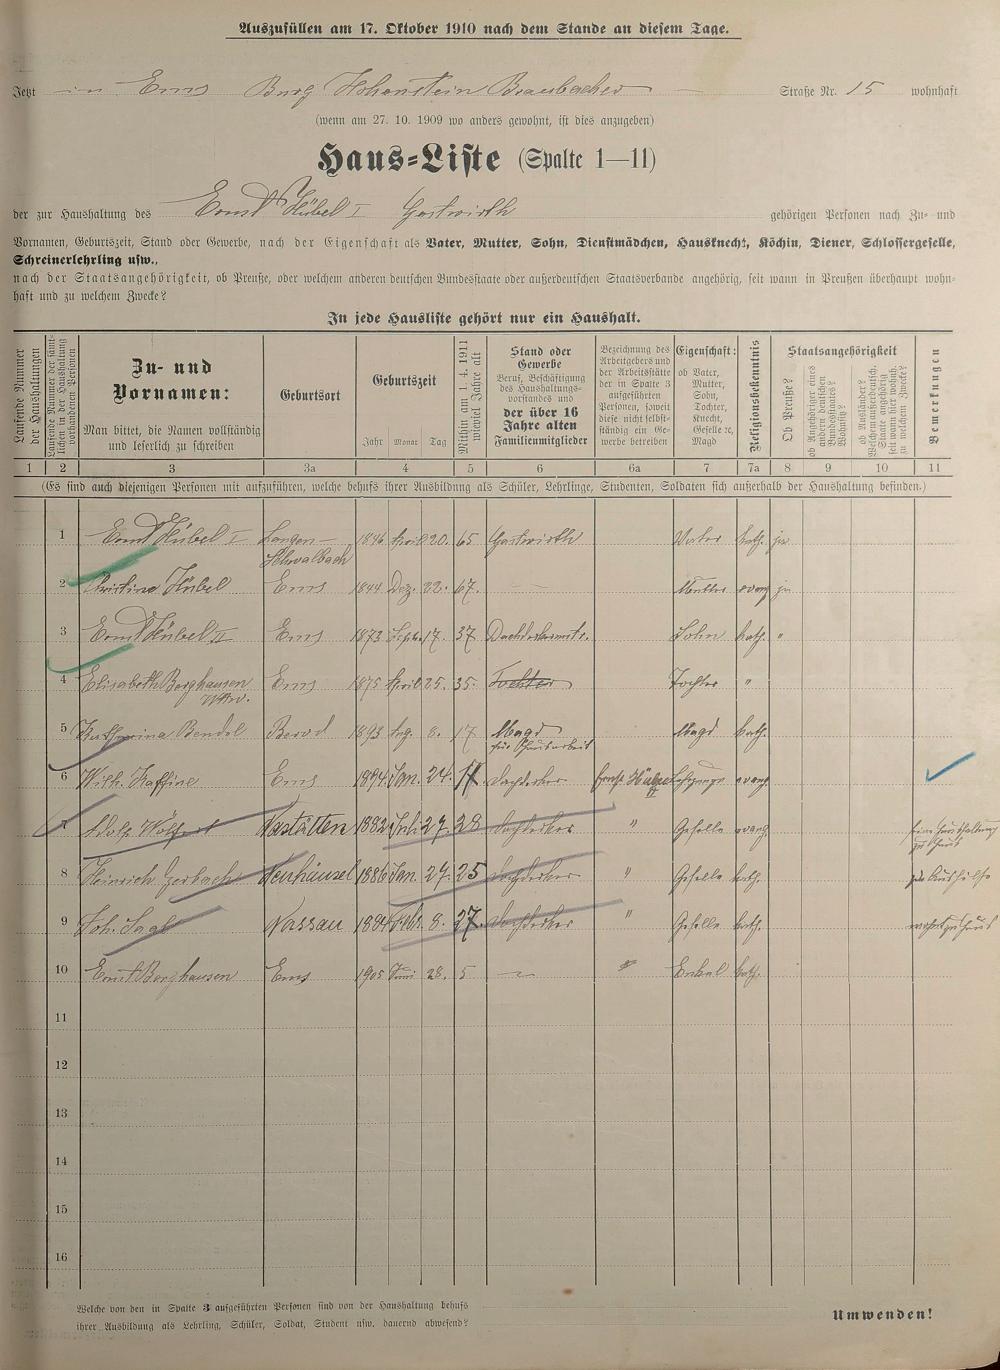 Auszufüllen am 17. Oktober 1910 nach dem Stande an diesem Tage.
Jetzt in Ems Burg Hohenstein Braubacher Straße Nr. 15 wohnhaft
(wenn am 27. 10. 1909 wo anders gewohnt, ist dies anzugeben)
Haus-Liste (Spalte 1—11)
der zur Haushaltung des Ernst Hübel I Gastwirth gehörigen Personen nach Zu- und
Vornamen, Geburtszeit, Stand oder Gewerbe, nach der Eigenschaft als Vater, Mutter, Sohn, Dienstmädchen, Hausknecht, Köchin, Diener, Schlossergeselle,
Schreinerlehrling usw.,
nach der Staatsangehörigkeit, ob Preuße, oder welchem anderen deutschen Bundesstaate oder außerdeutschen Staatsverbande angehörig, seit wann in Preußen überhaupt wohn-
haft und zu welchem Zwecke?
In jede Hausliste gehört nur ein Haushalt.
Laufende Nummer der Haushaltungen
Laufende Nummer der sämt-
lichen in der Haushaltung
vorhandenen Personen
Zu- und
Vornamen:
Man bittet, die Namen vollständig
und leserlich zu schreiben
Geburtsort
Geburtszeit
Jahr Monat Tag
Mithin am 1. 4. 1911
wieviel Jahre alt
Stand oder
Gewerbe
Beruf, Beschäftigung
des Haushaltungs-
vorstandes und
der über 16
Jahre alten
Familienmitglieder
Bezeichnung des
Arbeitgebers und
der Arbeitsstätte
der in Spalte 3
aufgeführten
Personen, soweit
diese nicht selbst-
ständig ein Ge-
werbe betreiben
Eigenschaft:
ob Vater,
Mutter,
Sohn,
Tochter,
Knecht,
Geselle ec,
Magd
Religionsbekenntnis
Staatsangehörigkeit
Ob Preuße?
ob Angehöriger eines
andern deutschen
Bundesstaates?
Wohnsitz?
ob Ausländer?
Welchem außerdeutsch.
Staate angehörig
seit wann hier wohnh.
zu welchem Zwecke?
Bemerkungen
1 2 3 3a 4 5 6 6a 7 7a 8 9 10 11
(Es sind auch diejenigen Personen mit aufzuführen, welche behufs ihrer Ausbildung als Schüler, Lehrlinge, Studenten, Soldaten sich außerhalb der Haushaltung befinden.)
1 Ernst Hübel I Langen- 1846 April 20. 65 Gastwirth Vater kath. ja
Schwalbach
2 Christina Hübel Ems 1844 Dez. 22. 67. — Mutter evang ja
3 Ernst Hübel II Ems 1873 Sept. 17. 37 Sohn kath. "
4 Elisabeth Berghausen Ems 1875 April 25. 35. Tochter Tochter "
Wtw.
5 Katharina Bendel Berod 1893 Aug. 8. 17 Magd Magd kath.
für Hausarbeit
6 Wilh. Kaffine Ems 1894 Jan. 24. Dachdecker Ernst Hübel evang
II
7 Adolf Nastätten 1882 Juli 27. 28 Dachdecker " Geselle evang.
8 Heinrich Gerbach Neuhäusel 1886 Jan. 27. 25 Dachdecker " Geselle kath. zur Aushülfe
9 Joh. Nassau 1884 Febr. 8. 27. Dachdecker " Geselle kath. wohnt zu Haus
10 Ernst Berghausen Ems 1905 Juni 28. 5 — " Enkel kath.
11
12
13
14
15
16
Welche von den in Spalte 3 aufgeführten Personen sind von der Haushaltung behufs
ihrer Ausbildung als Lehrling, Schüler, Soldat, Student usw. dauernd abwesend?
Umwenden!